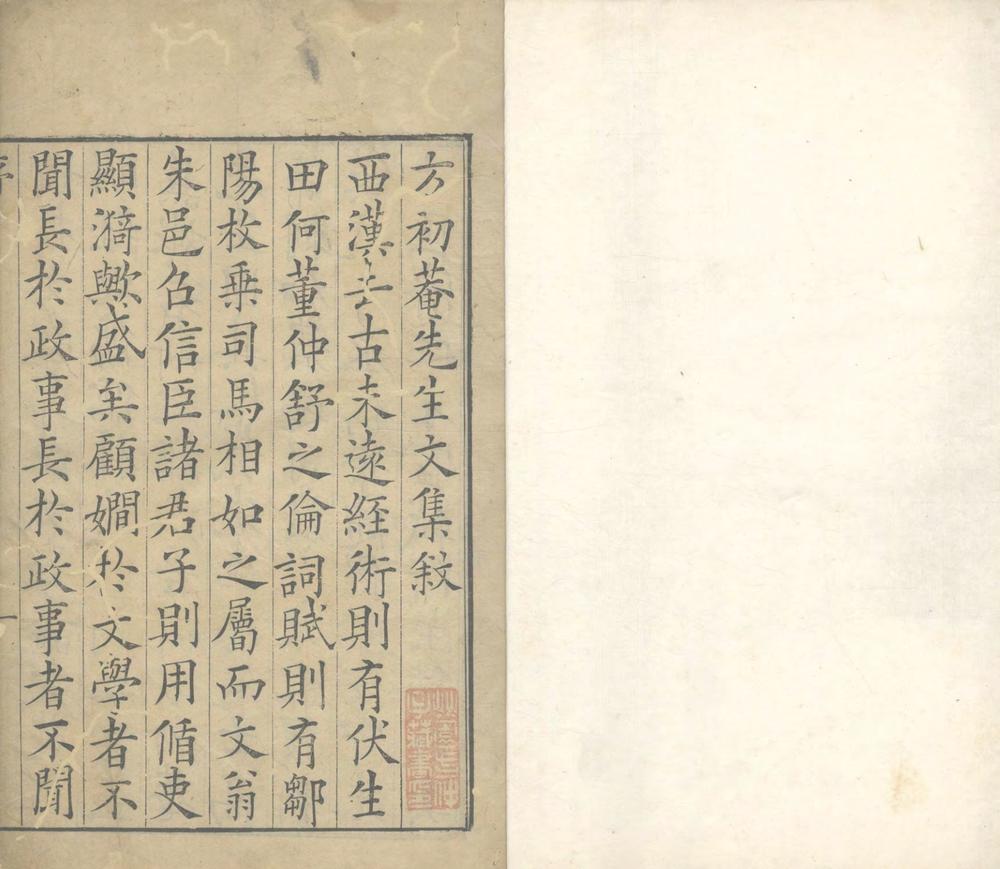 方初菴先生文集敘
西漢去古未遠經術則有伏生
田何董仲舒之倫詞賦則有鄒
陽枚乗司馬相如之屬而文翁
朱邑召信臣諸君子則用循吏
顯漪歟盛矣顧嫺於文學者不
聞長於政事長於政事者不聞